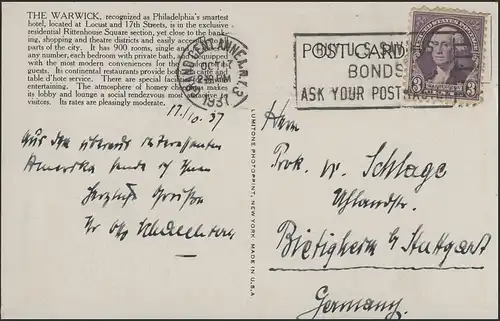 THE WARWICK, recognized as Philadelphia's smartest
hotel, located at Locust and 17th Streets, is in the exclusive
residential Rittenhouse Square section, yet close to the bank-
ing, shopping and theatre districts and easily accessible to
parts of the city. It has 900 rooms, single and
any number, each bedroom with private bath,
with the most modern conveniences for the
guests. Its continental restaurants provide both a la carte and
table d'hote service. There are special facilities
The atmosphere of homey
its lobby and lounge a social rendezvous most attractive to
visitors. Its rates are pleasantly moderate.
GRAND CENT. ANNEX
OCT 17
1937
POST CARD
BUY U.S.
BONDS
ASK YOUR POSTMASTER
3 3
17./10. 37
Aus dem überaus interessanten
Amerika sende ich Ihnen
herzliche Grüße
Ihr Otto
LUMITONE PHOTOPRINT, NEW YORK. MADE IN U.S.A.
Herrn
Prok. W. Schlage
Uhlandstr.
Bietigheim b/ Stuttgart
Germany.